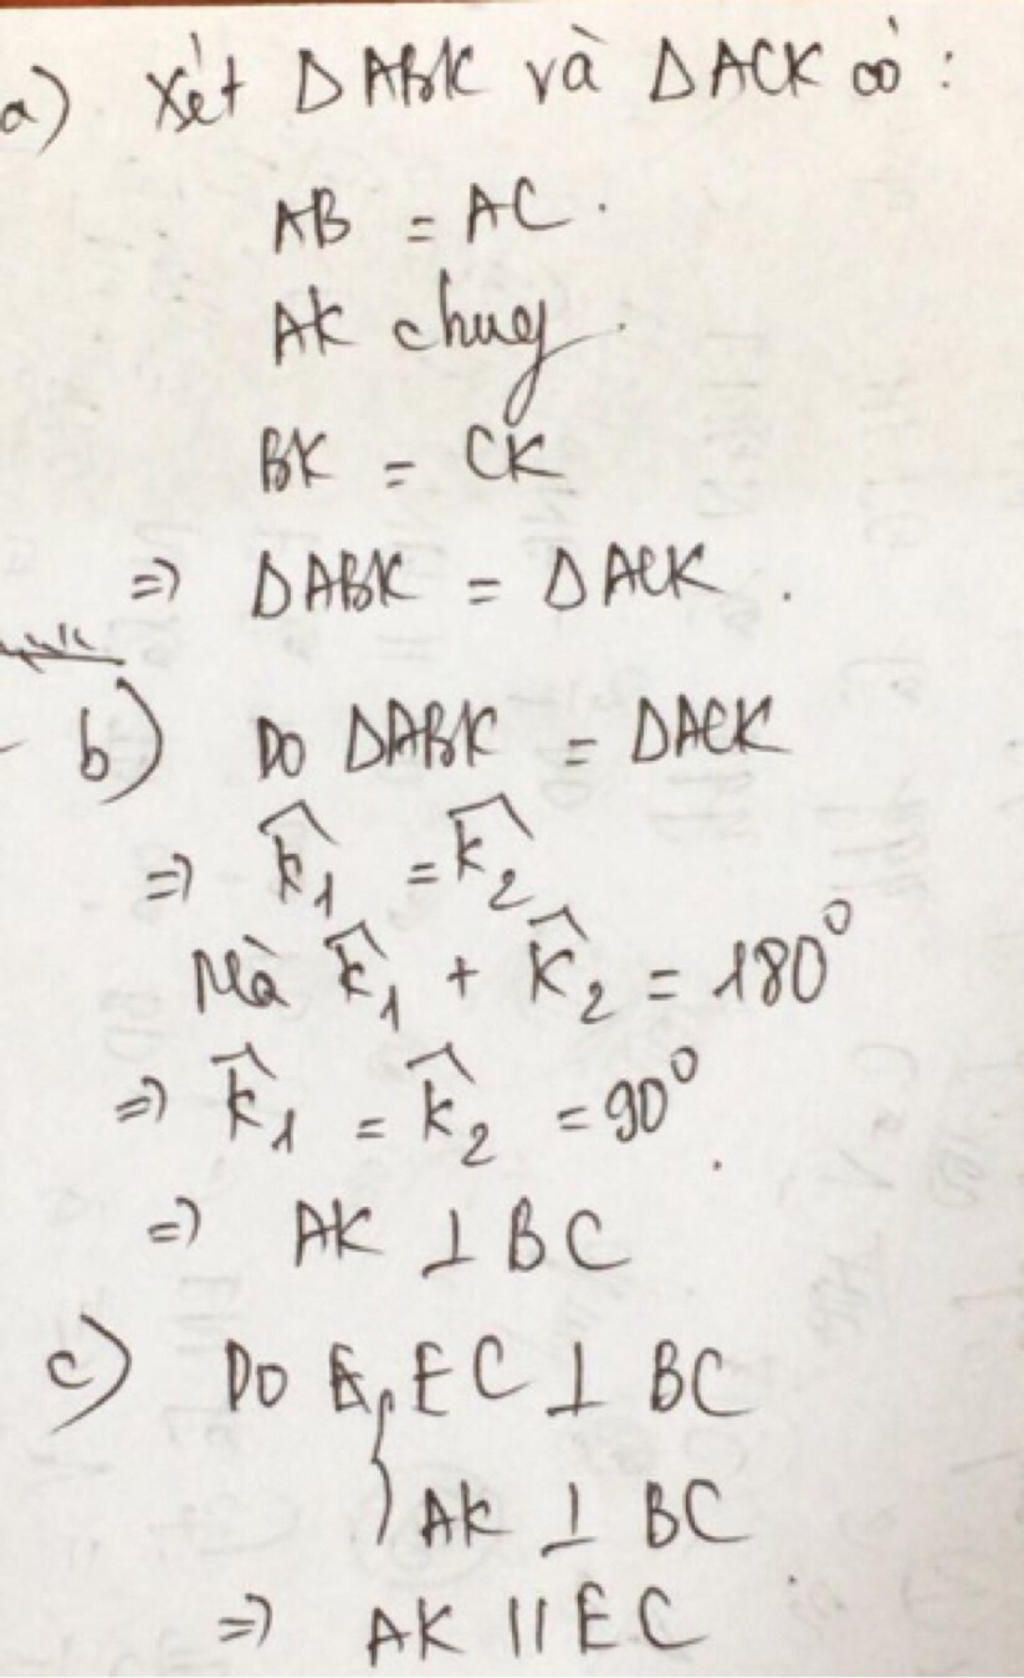 a) Xét ΔABK và ΔACK có :
AB = AC .
AK chung .
BK = CK
=> ΔABK = ΔACK .
b) Do ΔABK = ΔACK
=> K̂₁ = K̂₂
Mà K̂₁ + K̂₂ = 180°
=> K̂₁ = K̂₂ = 90° .
=> AK ⊥ BC
c) Do { EC ⊥ BC
AK ⊥ BC
=> AK // EC